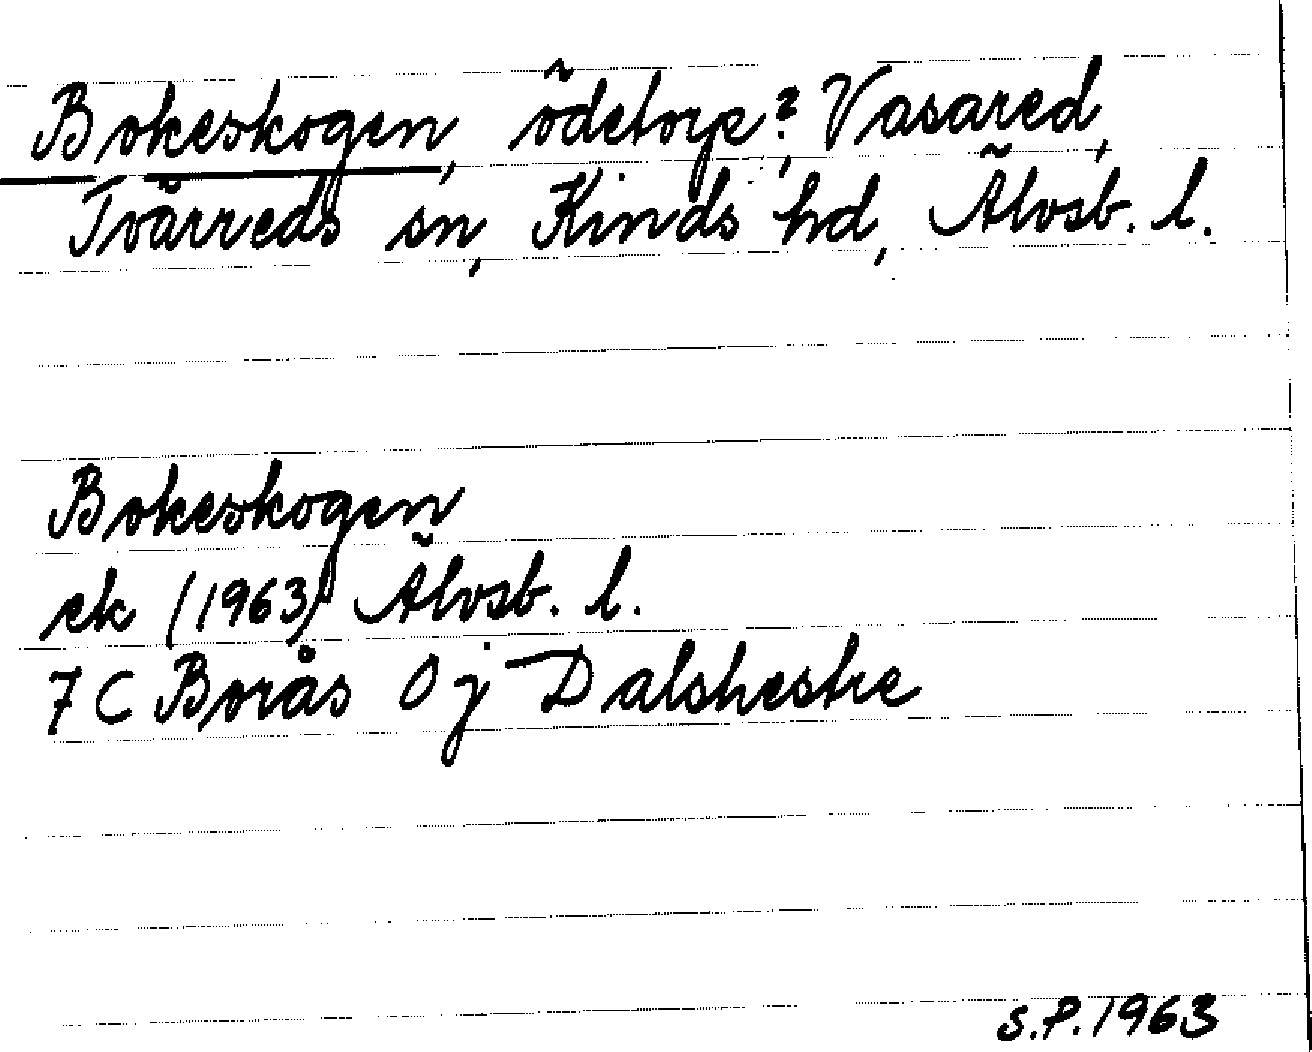 Bokeskogen, ödetorp?, Vasared,
Tvärreds sn, Kinds hd, Älvsb. l.
Bokeskogen
ek (1963) Älvsb. l.
7 C Borås 0 j Dalsheske
S.P. 1963